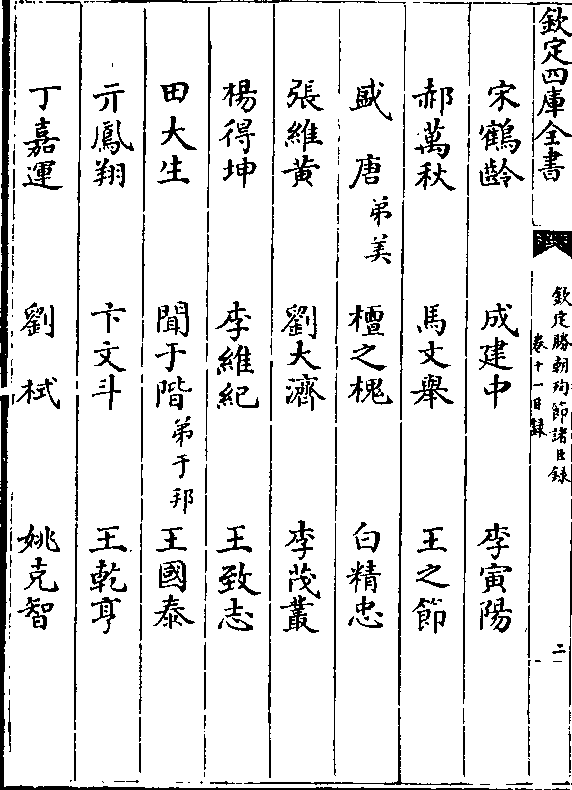 欽定四庫全書
欽定勝朝殉節諸臣錄
卷十一目錄
二
宋鶴齡 成建中 李寅陽
郝萬秋 馬文舉 王之節
盛唐弟美 檀之槐 白精忠
張維黄 劉大濟 李茂叢
楊得坤 李維紀 王致志
田大生 聞于階弟于邦 王國泰
亓鳳翔 卞文斗 王乾亨
丁嘉運 劉栻 姚克智